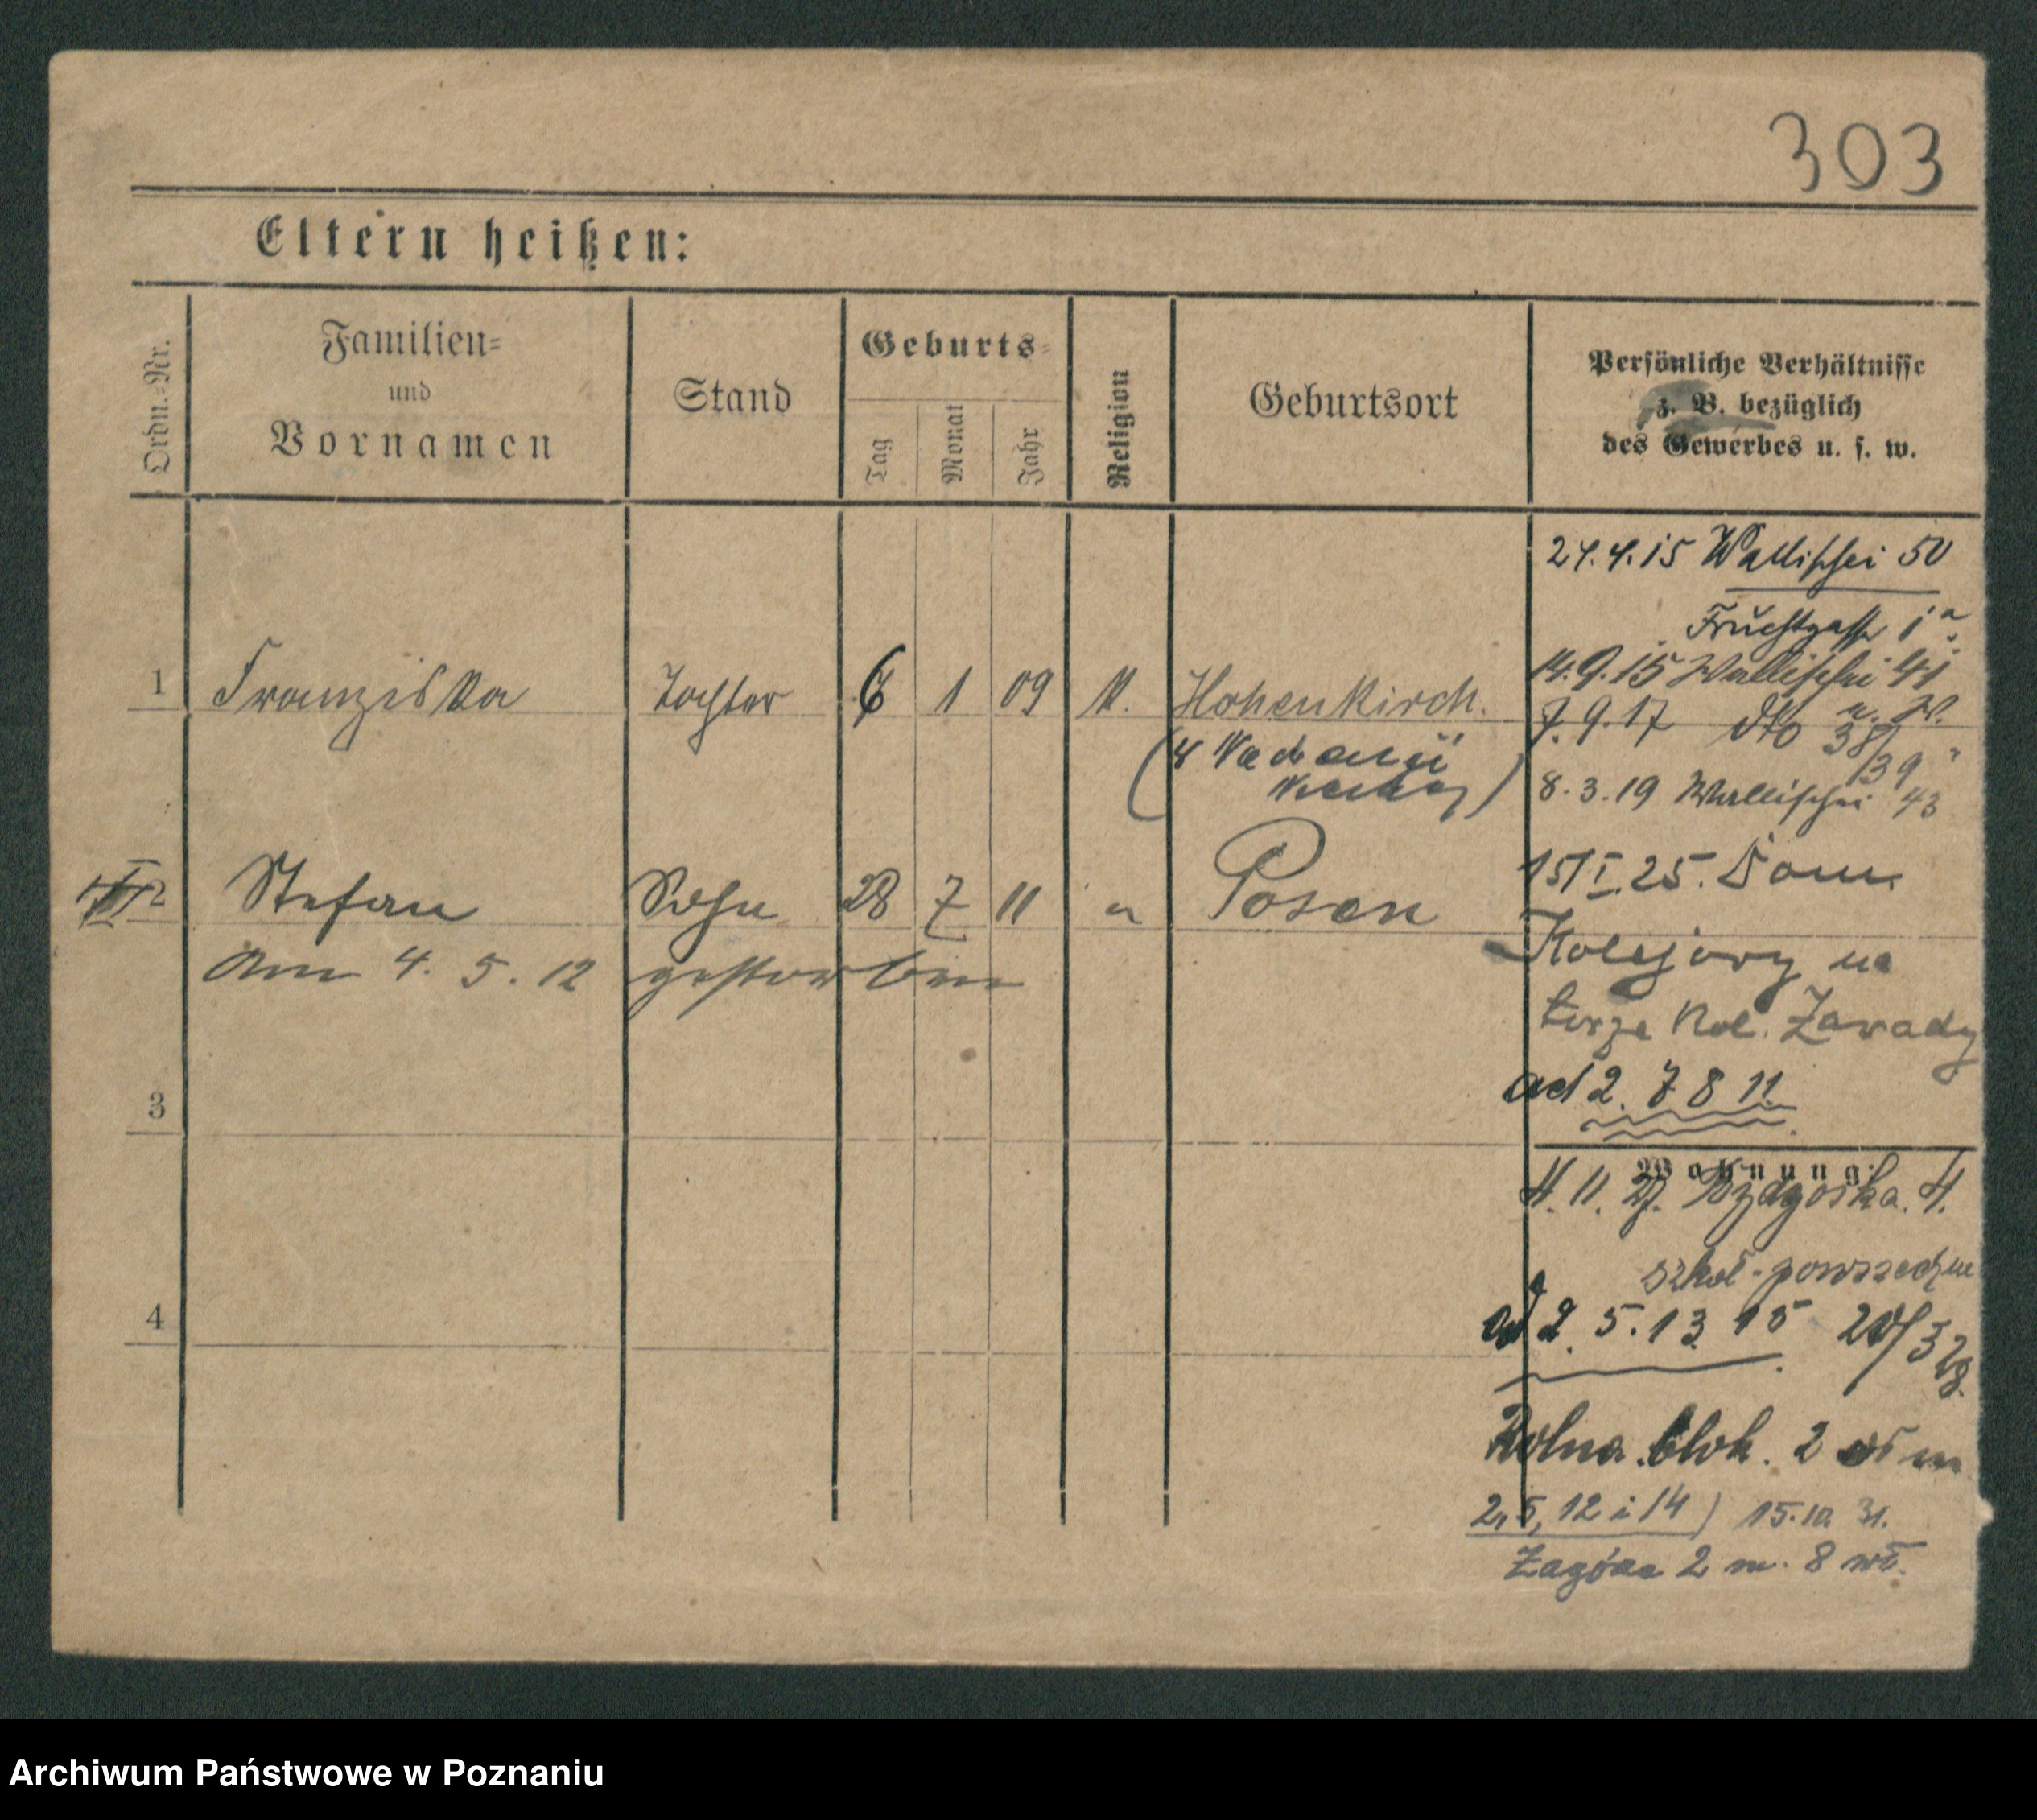 303
Eltern heißen:
Ordn.-Nr.
Familien-
und
Vornamen
Stand
Geburts-
Tag
Monat
Jahr
Religion
Geburtsort
Persönliche Verhältnisse
z. B. bezüglich
des Gewerbes u. s. w.
24.4.15 Wallischei 50
Fruchtgasse 1a
1 Franziska Tochter 6 1 09 K. Hohenkirch.
14.9.15 Wallischei 41
7.9.17 dto 38/39
8.3.19 Wallischei 43
2 Stefan Sohn 28 7 11 " Posen
am 4. 5. 12 gestorben
15/I.25. Dom
Kolejowy na
torze Kol. Zawady
ad 2. 7 8 11
3
Wohnung:
4.11.27. Bydgoska. 4.
szkoł. powszechne
4
ad 2. 5. 13. 15 20/3 28.
Rolna blok. 2
2, 5, 12 i 14) 15.10. 31.
Zagórze 2 m. 8 wł.
Archiwum Państwowe w Poznaniu